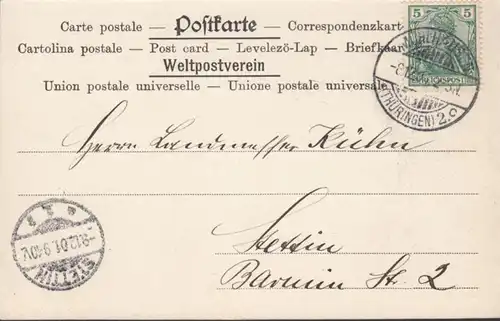 Carte postale — Postkarte — Correspondenzkart
Cartolina postale — Post card — Levelezö-Lap — Briefkaar
Weltpostverein
Union postale universelle — Unione postale universale
5 5
REICHSPOST
(THÜRINGEN) 2. c
Herrn Landmesser Kühn
Stettin
Barnim Str. 2
STETTIN
-9.12.01.9-10V.